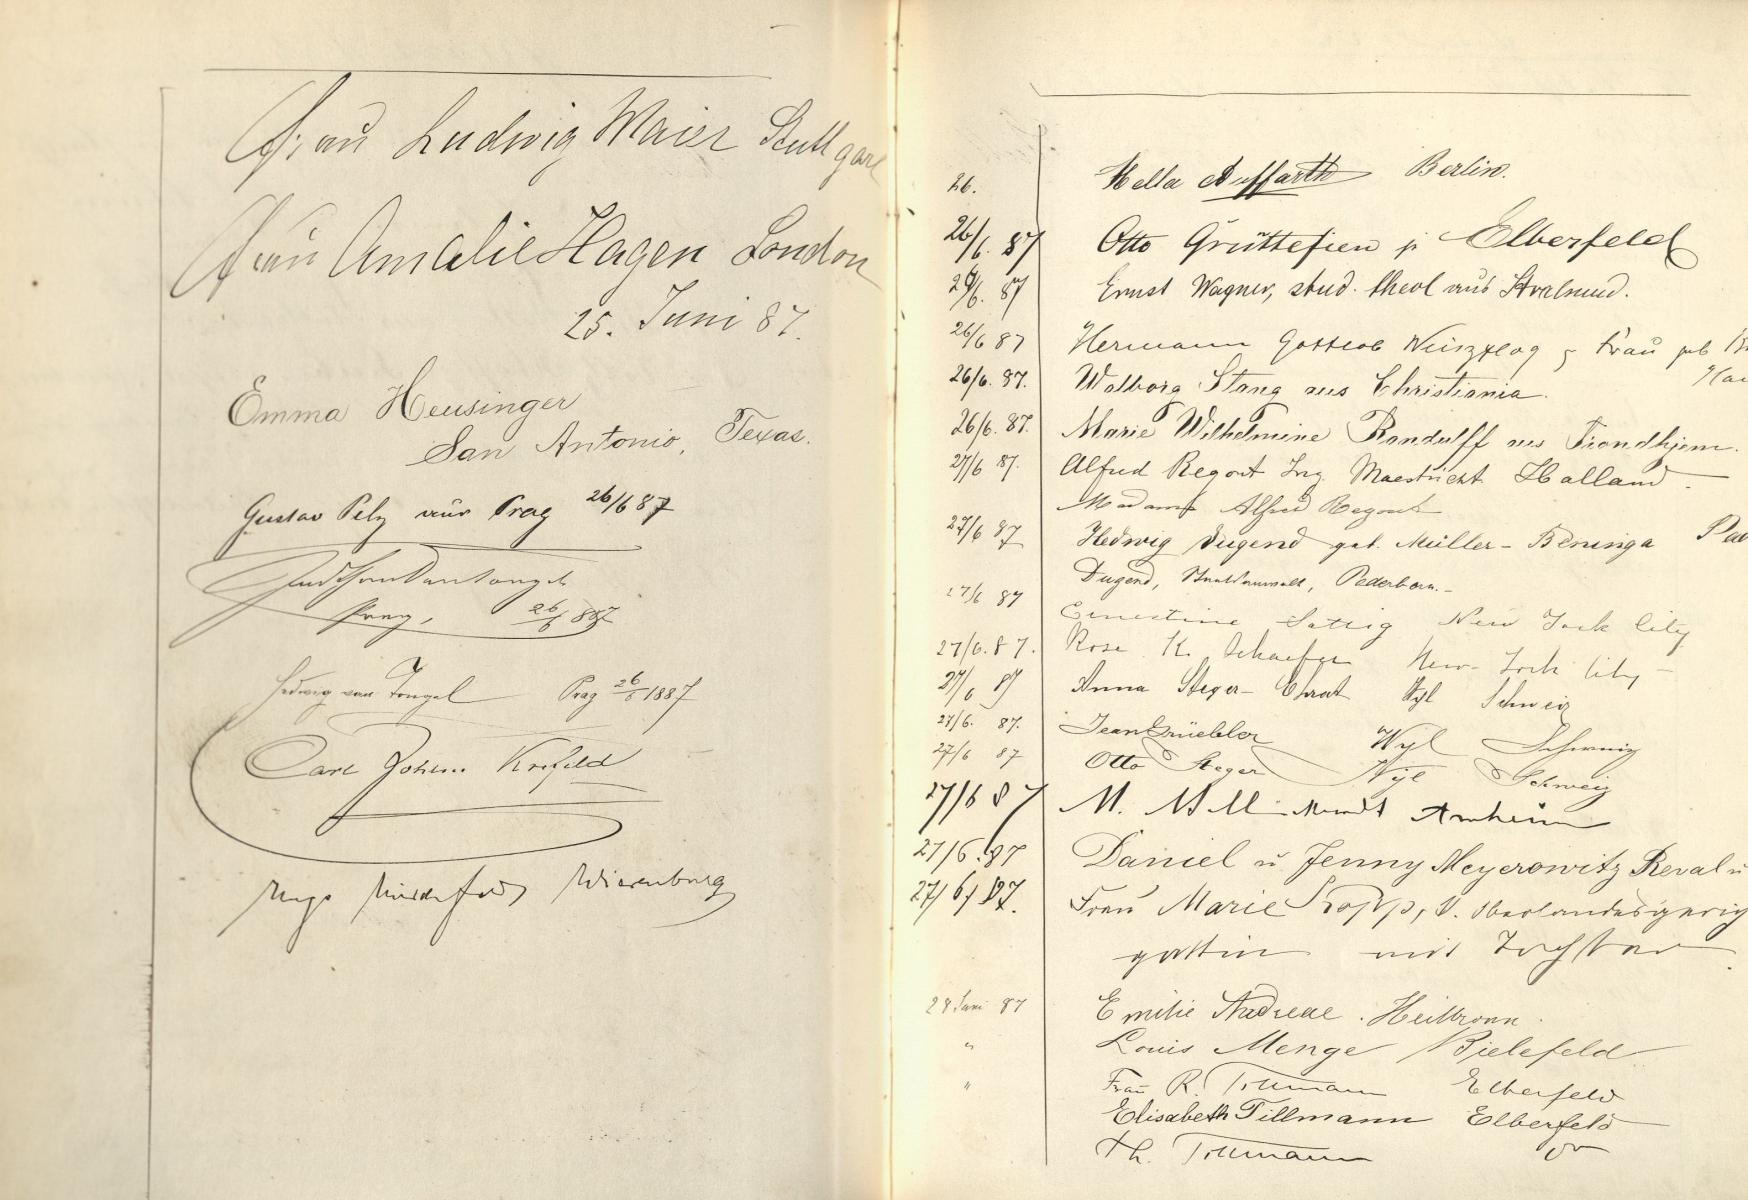 Frau Ludwig Maier Stuttgart
Frau Amalie Hagen London
25. Juni 87.
Emma Heusinger
San Antonio, Texas.
Gustav Pelz aus Prag 26/6 87
Prag, 26/6 887
Hedwig von Prag 26/6 1887
Carl Johem Krefeld
26. Hella Auffarth Berlin.
26/6. 87 Otto Grüttefien jr Elberfeld
26/6. 87 Ernst Wagner, stud. theol aus Stralsund.
26/6 87 Hermann Gottlob Weiszflog & Frau geb
26/6. 87. Walborg Stang aus Christiania.
26/6. 87. Marie Wilhelmine Randulff aus Trondhjem.
27/6 87. Alfred Regout Ing. Maestricht Holland.
Madame Alfred Regout
27/6 87 Hedwig Dugend geb. Müller-Beninga
Dugend, Staatsanwalt, Paderborn.
27/6 87 Ernestine Sattig New York City
27/6. 87. Rose K. Schaefer New-York City
27/6 87 Anna Steger-Ehrat Wyl Schweiz
27/6. 87. Jean Grüebler Wyl Schweiz
27/6 87 Otto Steger Wyl Schweiz
27/6 87 M. Arnheim
27/6. 87 Daniel u Jenny Meyerowitz Reval u
27/6/ 87. Frau Marie Kopp, K. Oberlandesgerich
gattin mit Tochter
28 Juni 87 Emilie Andreae. Heilbronn.
" Louis Menge Bielefeld
" Frau R. Tillmann Elberfeld
Elisabeth Tillmann Elberfeld
Th. Tillmann do